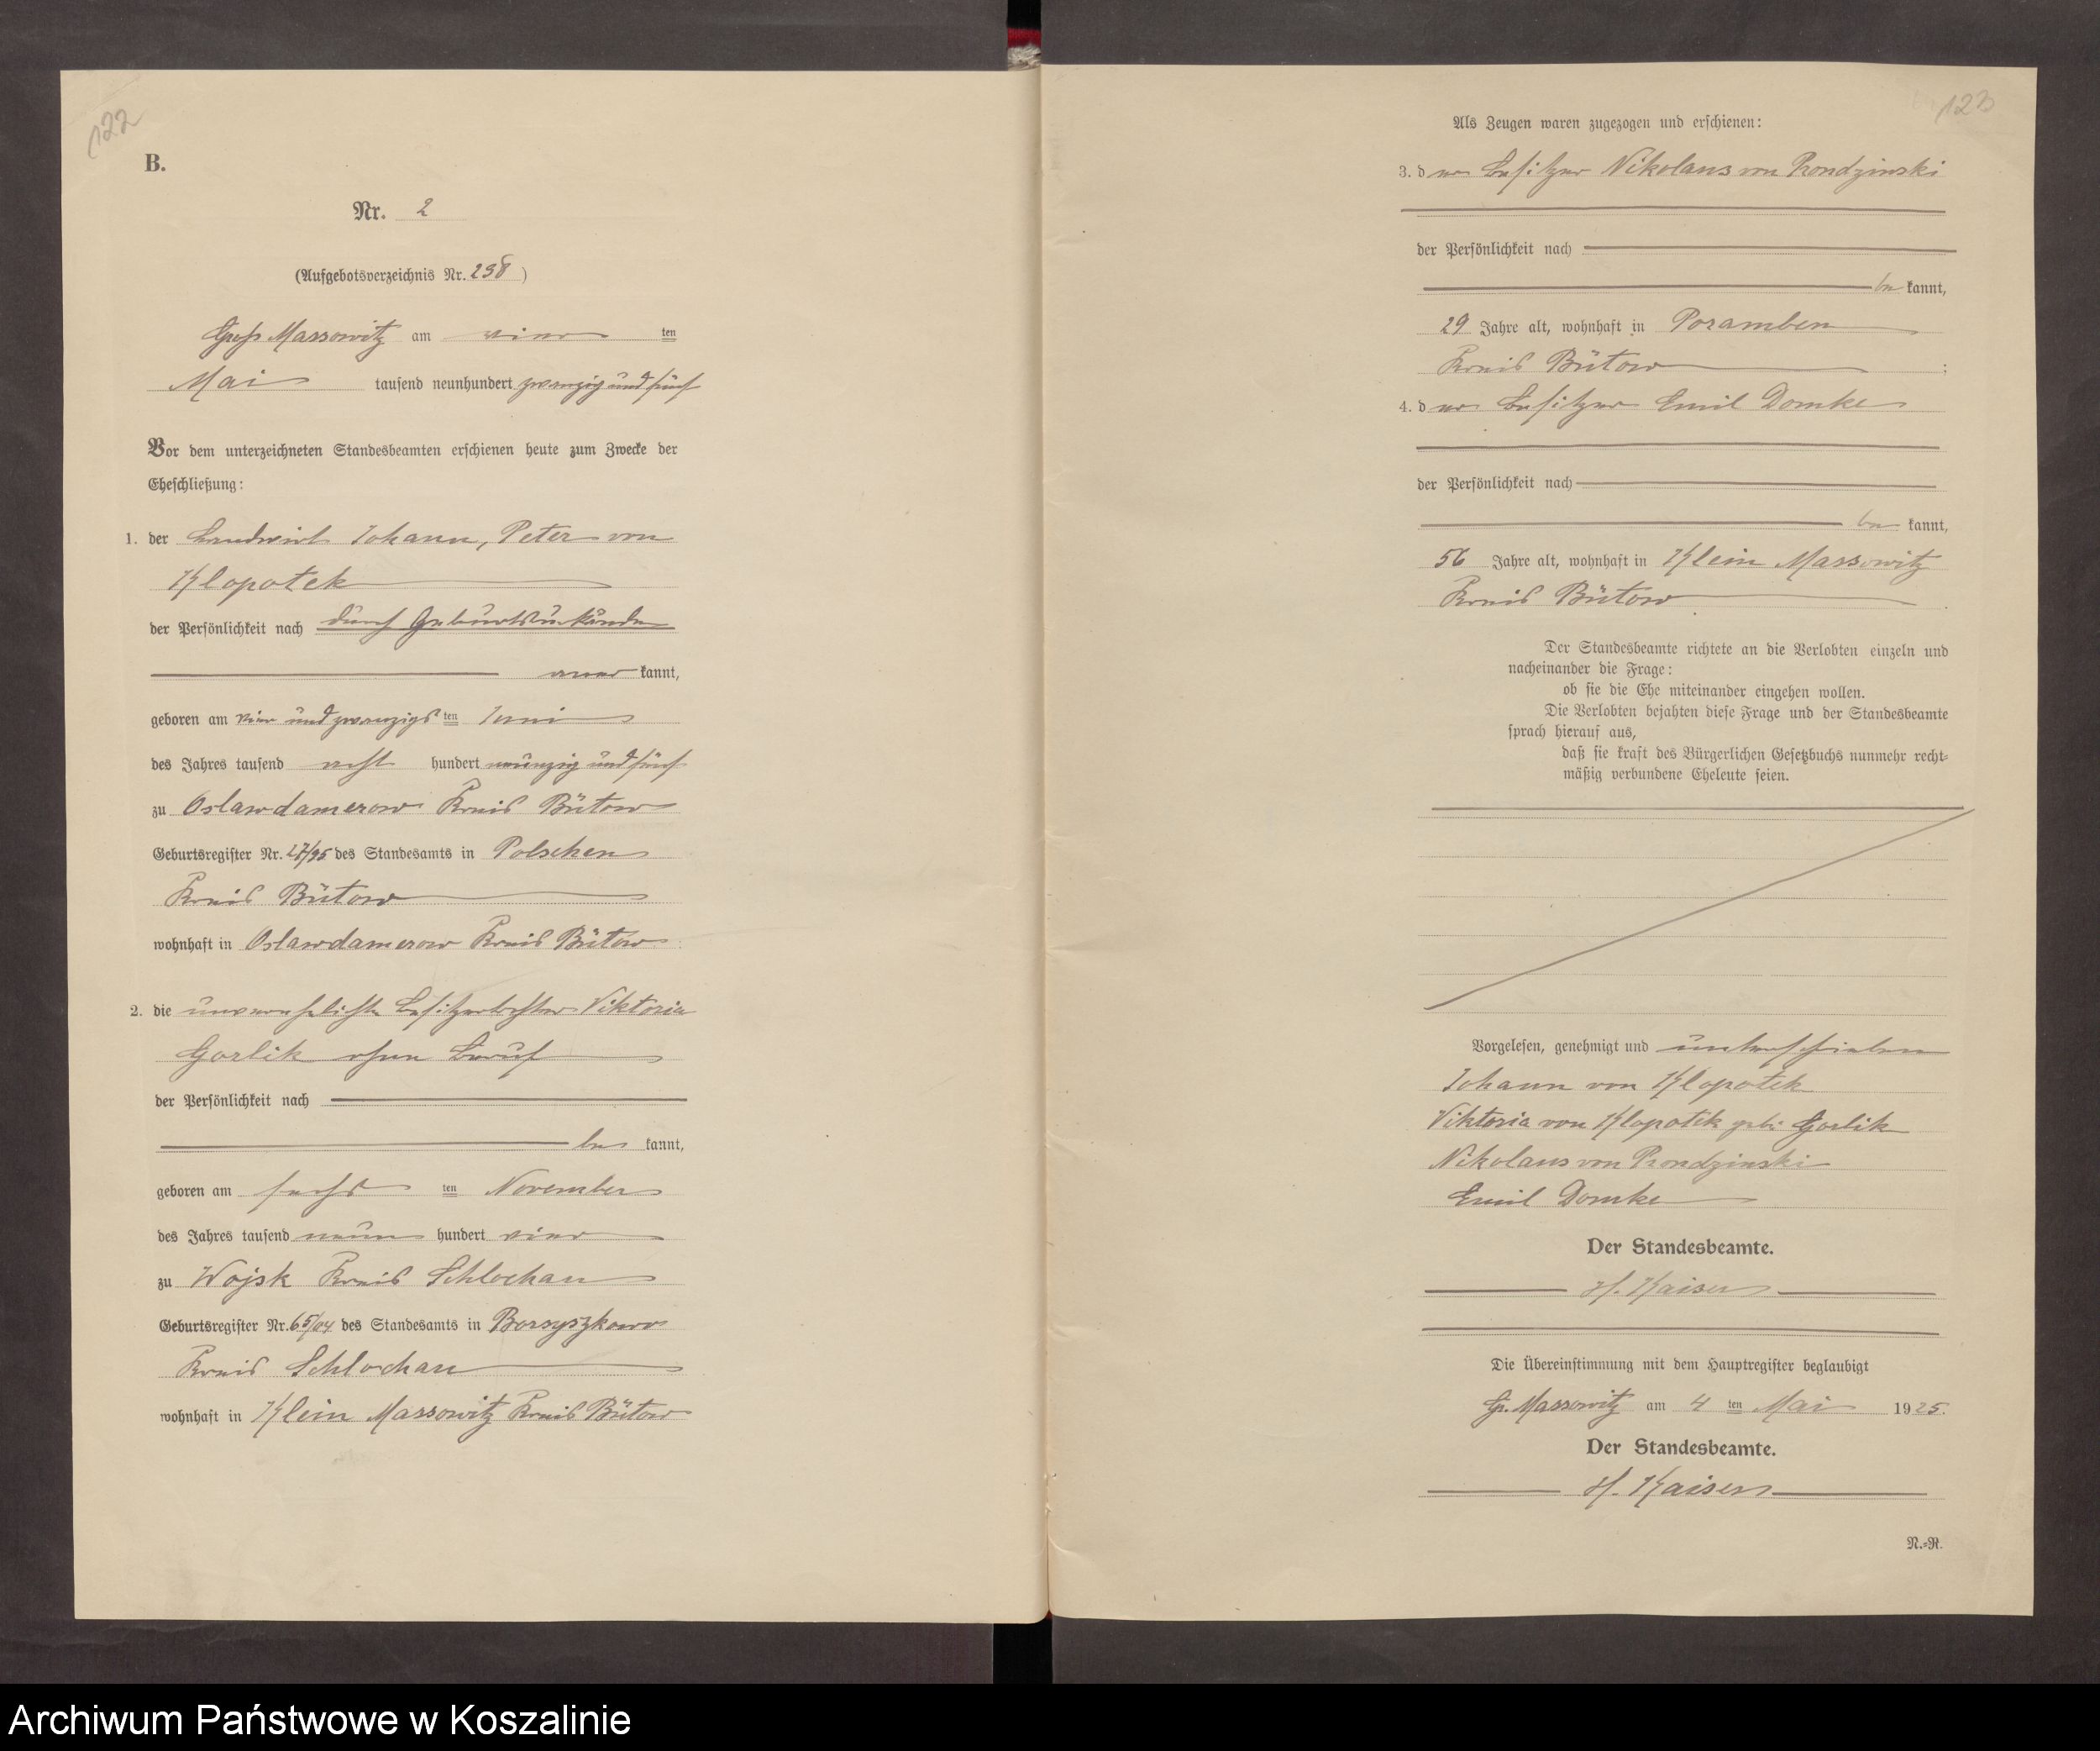 122
B.
Nr. 2
(Aufgebotsverzeichnis Nr. 238)
Groß Massowitz am vier ten
Mai tausend neunhundert zwanzig und fünf
Vor dem unterzeichneten Standesbeamten erschienen heute zum Zwecke der
Eheschließung:
1. der Landwirt Johann, Peter von
Klopotek
der Persönlichkeit nach durch Geburtsurkunde
aner kannt,
geboren am vier und zwanzigs ten Juni
des Jahres tausend acht hundert neunzig und fünf
zu Oslawdamerow Kreis Bütow
Geburtsregister Nr. 27/95 des Standesamts in Polschen
Kreis Bütow
wohnhaft in Oslawdamerow Kreis Bütow
2. die unverehelichte Besitzertochter Viktoria
Gorlik ohne Beruf
der Persönlichkeit nach
be kannt,
geboren am sechs ten November
des Jahres tausend neun hundert vier
zu Wojsk Kreis Schlochau
Geburtsregister Nr. 65/04 des Standesamts in Borsyszkowo
Kreis Schlochau
wohnhaft in Klein Massowitz Kreis Bütow
123
Als Zeugen waren zugezogen und erschienen:
3. der Besitzer Nikolaus von Prondzinski
der Persönlichkeit nach
be kannt,
29 Jahre alt, wohnhaft in Poramben
Kreis Bütow ;
4. der Besitzer Emil Domke
der Persönlichkeit nach
be kannt,
56 Jahre alt, wohnhaft in Klein Massowitz
Kreis Bütow .
Der Standesbeamte richtete an die Verlobten einzeln und
nacheinander die Frage:
ob sie die Ehe miteinander eingehen wollen.
Die Verlobten bejahten diese Frage und der Standesbeamte
sprach hierauf aus,
daß sie kraft des Bürgerlichen Gesetzbuchs nunmehr recht-
mäßig verbundene Eheleute seien.
Vorgelesen, genehmigt und unterschrieben
Johann von Klopotek
Viktoria von Klopotek geb. Gorlik
Nikolaus von Prondzinski
Emil Domke
Der Standesbeamte.
H. Kaiser
Die Übereinstimmung mit dem Hauptregister beglaubigt
Gr. Massowitz am 4 ten Mai 1925.
Der Standesbeamte.
H. Kaiser
N.-R.
Archiwum Państwowe w Koszalinie